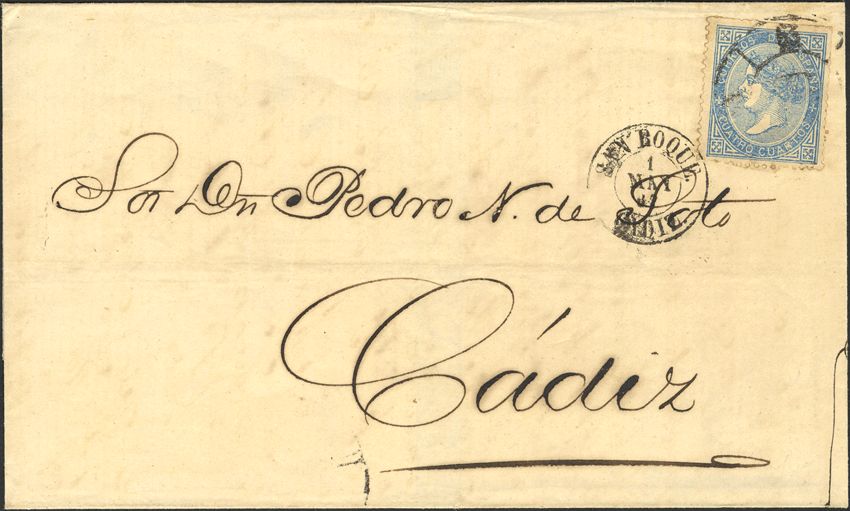 CORREOS DE ESPAÑA
CUATRO CUARTOS
SAN ROQUE
1
MAY
CADIZ
Sor Dn Pedro N. de Soto
Cádiz